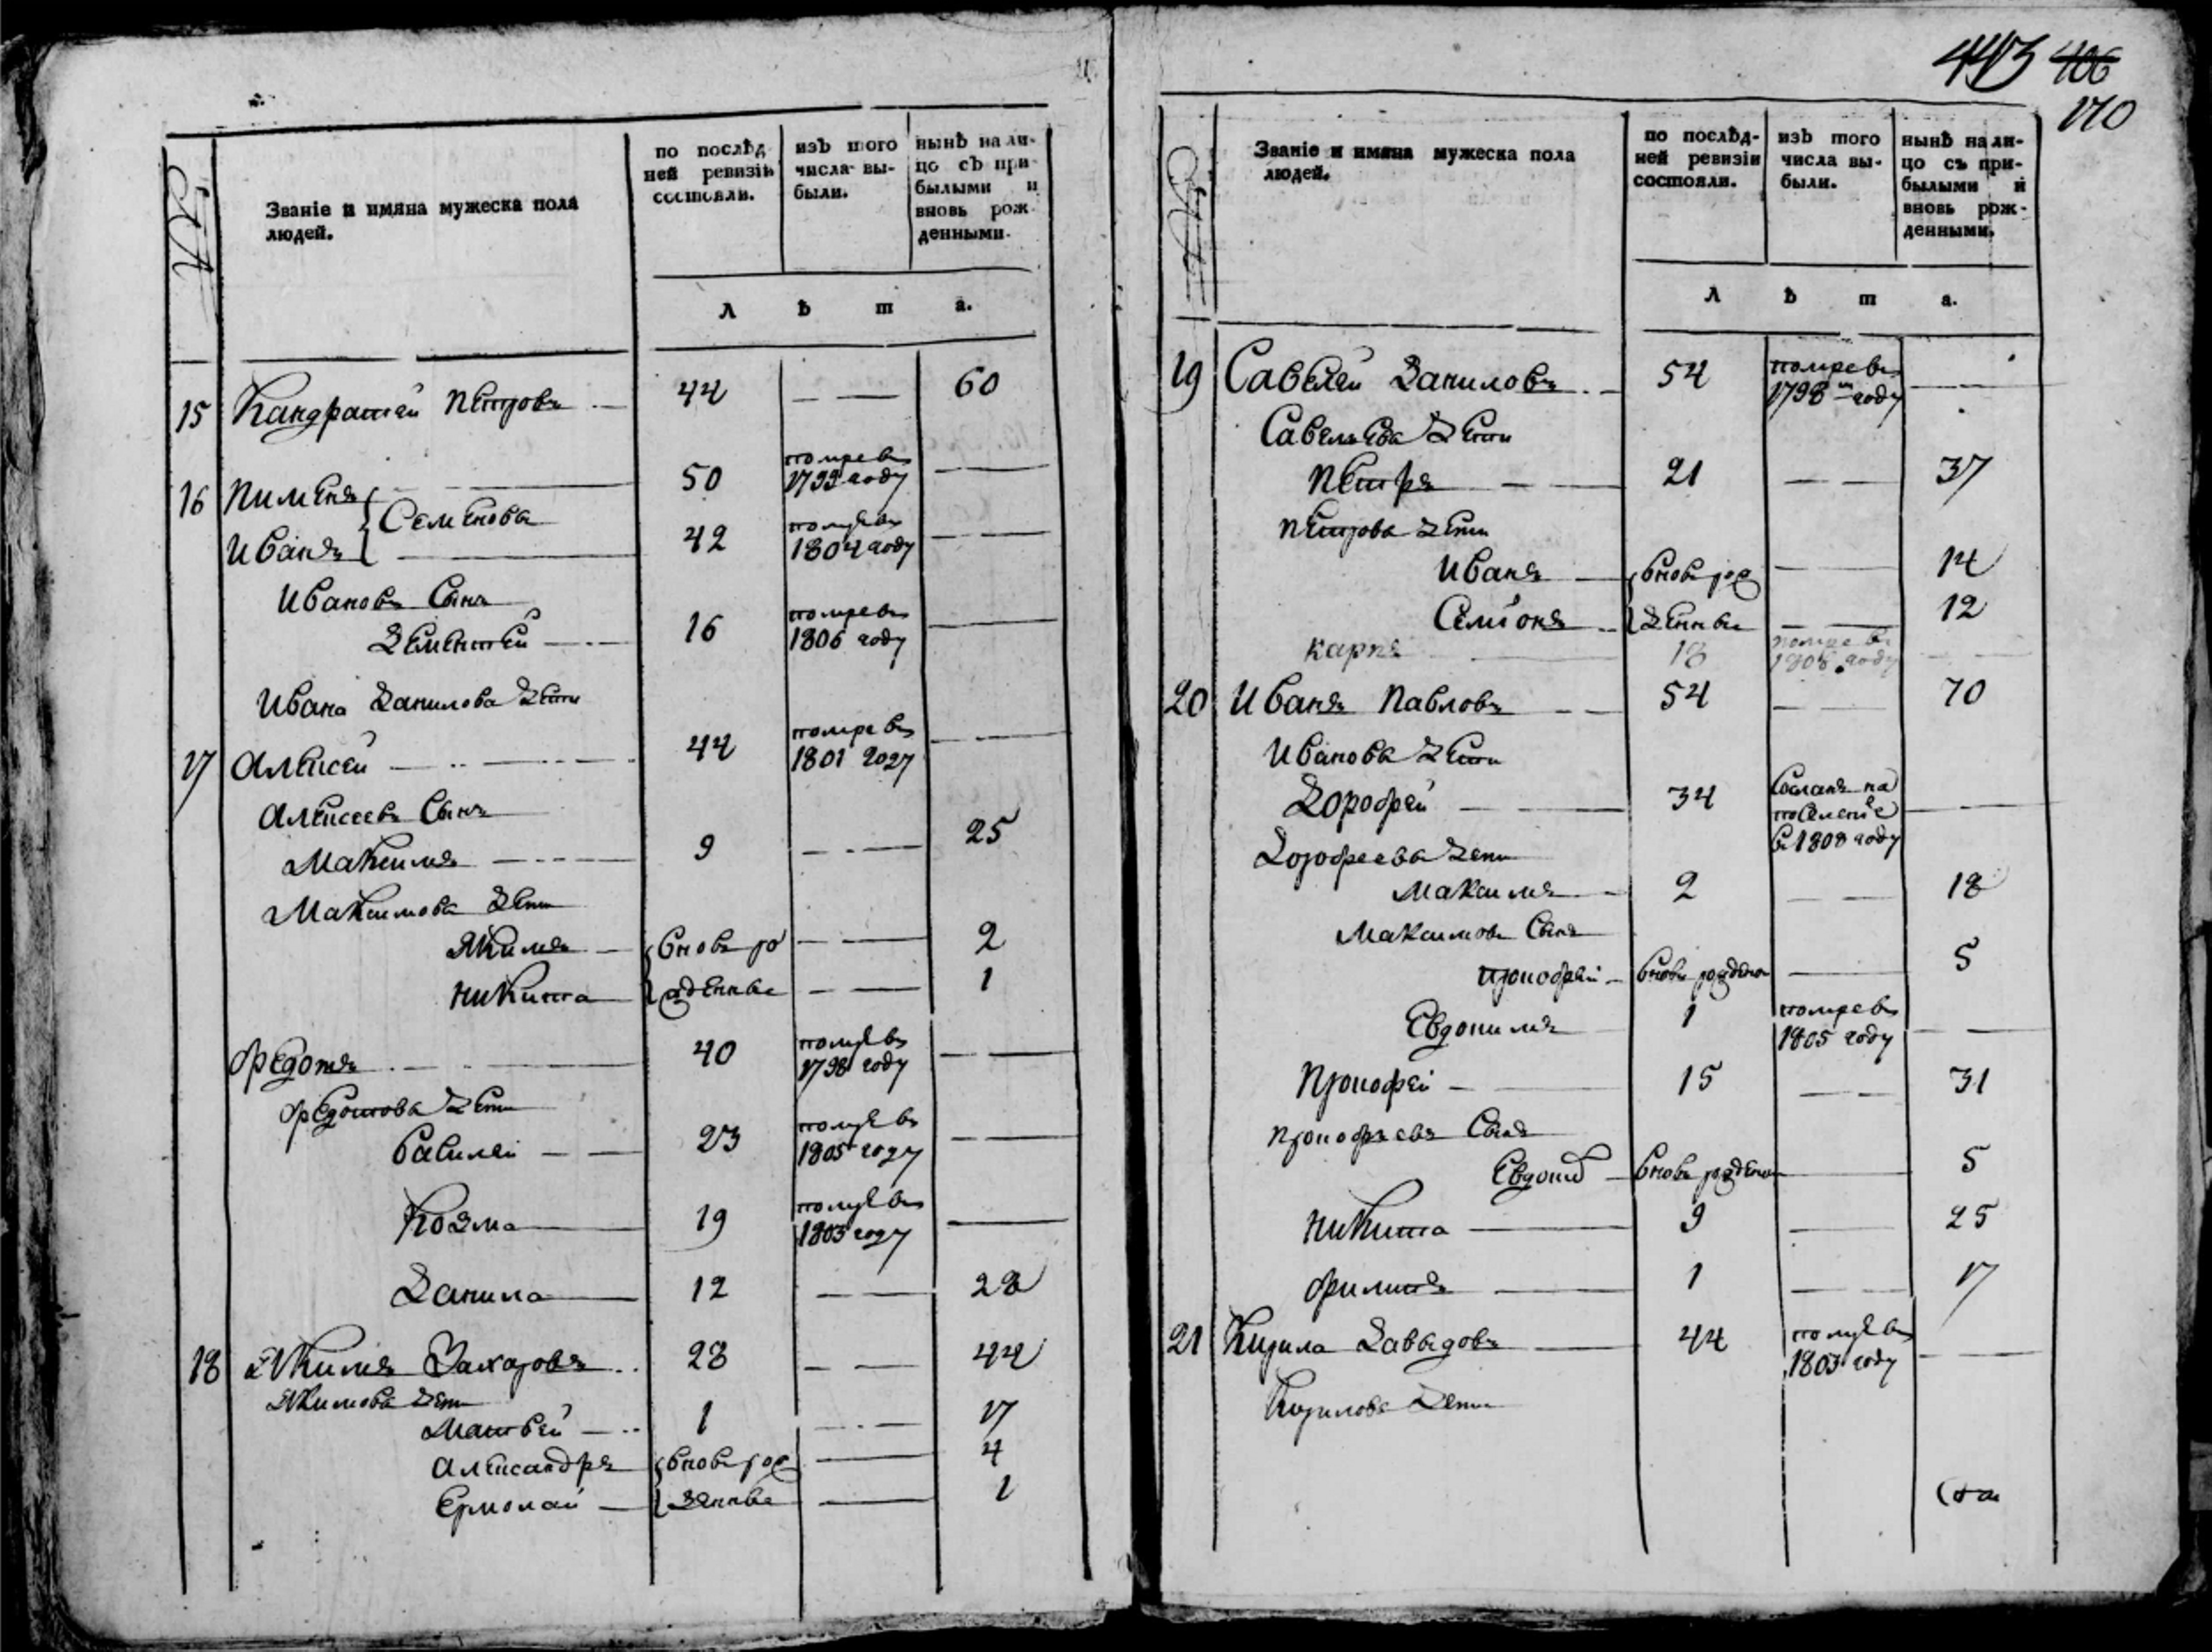 Званіе и имяна мужеска пола
людей.
по послѣд-
ней ревизіи
состояли.
изЪ того
числа вы-
были.
нынѢ на ли-
цо сЪ при-
былыми и
вновь рож-
денными.
л ѣ т а.
15 Кандратей Петровъ 44 60
16 Пименъ 50 помре въ
1799 году
Семенова
Иванъ 42 помре въ
1804 году
Ивановъ Сынъ
Дементей 16 помре въ
1806 году
Ивана Данилова дети
17 Алексей 44 помре въ
1801 году
Алексеевъ Сынъ
Максимъ 9 25
Максимова дети
Якимъ вновь ро 2
Никита жденные 1
Федотъ 40 помре въ
1798 году
Федотова дети
Василей 23 помре въ
1805 году
Козма 19 помре въ
1803 году
Данила 12 28
18 Якимъ Захаровъ 28 44
Якимова дети
Матвей 1 17
Александръ вновь рож 4
Ермолай денные 1
443 406
170
Званіе и имяна мужеска пола
людей.
по послѣд-
ней ревизіи
состояли.
изЪ того
числа вы-
были.
нынѢ на ли-
цо съ при-
былыми и
вновь рож-
денными.
л ѣ т а.
19 Савелей Даниловъ 54 помре въ
1798 м году
Савельева дети
Петръ 21 37
Петрова дети
Иванъ вновь рож 14
Семионъ денные 12
Карпъ 18 помре въ
1808 году
20 Иванъ Павловъ 54 70
Иванова дети
Дорофей 34 Сосланъ на
поселение
в 1808 году
Дорофеева дети
Максимъ 2 18
Максимовъ Сынъ
Прокофей вновь рожденъ 5
Евдокимъ 1 помре въ
1805 году
Прокофей 15 31
Прокофьевъ Сынъ
вновь рожденъ 5
Никита 9 25
Филипъ 1 17
21 Кирила Давыдовъ 44 помре въ
1803 году
Кирилова дети